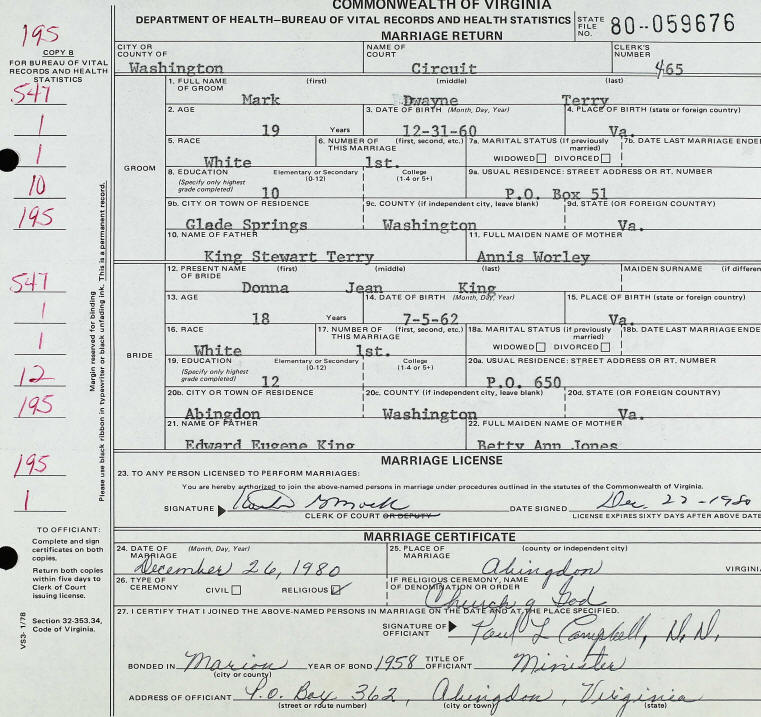 COMMONWEALTH OF VIRGINIA
DEPARTMENT OF HEALTH—BUREAU OF VITAL RECORDS AND HEALTH STATISTICS
MARRIAGE RETURN
STATE FILE NO. 80--059676
195
COPY B
FOR BUREAU OF VITAL
RECORDS AND HEALTH
STATISTICS
CITY OR COUNTY OF Washington NAME OF COURT Circuit CLERK'S NUMBER 465
547
1
1
10
195
GROOM
1. FULL NAME OF GROOM (first) (middle) (last)
Mark Dwayne Terry
2. AGE 19 Years 3. DATE OF BIRTH (Month, Day, Year) 12-31-60 4. PLACE OF BIRTH (state or foreign country) Va.
5. RACE White 6. NUMBER OF THIS MARRIAGE (first, second, etc.) 1st. 7a. MARITAL STATUS (If previously married) WIDOWED DIVORCED 7b. DATE LAST MARRIAGE ENDE
8. EDUCATION (Specify only highest grade completed) Elementary or Secondary (0-12) 10 College (1-4 or 5+) 9a. USUAL RESIDENCE: STREET ADDRESS OR RT. NUMBER P.O. Box 51
9b. CITY OR TOWN OF RESIDENCE Glade Springs 9c. COUNTY (if independent city, leave blank) Washington 9d. STATE (OR FOREIGN COUNTRY) Va.
10. NAME OF FATHER King Stewart Terry 11. FULL MAIDEN NAME OF MOTHER Annis Worley
547
1
1
12
195
BRIDE
12. PRESENT NAME OF BRIDE (first) (middle) (last) MAIDEN SURNAME (if differen
Donna Jean King
13. AGE 18 Years 14. DATE OF BIRTH (Month, Day, Year) 7-5-62 15. PLACE OF BIRTH (state or foreign country) Va.
16. RACE White 17. NUMBER OF THIS MARRIAGE (first, second, etc.) 1st. 18a. MARITAL STATUS (If previously married) WIDOWED DIVORCED 18b. DATE LAST MARRIAGE ENDE
19. EDUCATION (Specify only highest grade completed) Elementary or Secondary (0-12) 12 College (1-4 or 5+) 20a. USUAL RESIDENCE: STREET ADDRESS OR RT. NUMBER P.O. 650
20b. CITY OR TOWN OF RESIDENCE Abingdon 20c. COUNTY (if independent city, leave blank) Washington 20d. STATE (OR FOREIGN COUNTRY) Va.
21. NAME OF FATHER Edward Eugene King 22. FULL MAIDEN NAME OF MOTHER Betty Ann Jones
Margin reserved for binding
Please use black ribbon in typewriter or black unfading ink. This is a permanent record.
195
1
MARRIAGE LICENSE
23. TO ANY PERSON LICENSED TO PERFORM MARRIAGES:
You are hereby authorized to join the above-named persons in marriage under procedures outlined in the statutes of the Commonwealth of Virginia.
SIGNATURE DATE SIGNED Dec. 22-1980
CLERK OF COURT OR DEPUTY LICENSE EXPIRES SIXTY DAYS AFTER ABOVE DATE
TO OFFICIANT:
Complete and sign
certificates on both
copies.
Return both copies
within five days to
Clerk of Court
issuing license.
Section 32-353.34,
Code of Virginia.
VS3- 1/78
MARRIAGE CERTIFICATE
24. DATE OF MARRIAGE (Month, Day, Year) December 26, 1980 25. PLACE OF MARRIAGE (county or independent city) Abingdon VIRGINI
26. TYPE OF CEREMONY CIVIL RELIGIOUS ✓ IF RELIGIOUS CEREMONY, NAME OF DENOMINATION OR ORDER Church of God
27. I CERTIFY THAT I JOINED THE ABOVE-NAMED PERSONS IN MARRIAGE ON THE DATE AND AT THE PLACE SPECIFIED.
SIGNATURE OF OFFICIANT Paul L Campbell, D.D.
BONDED IN Marion (city or county) YEAR OF BOND 1958 TITLE OF OFFICIANT Minister
ADDRESS OF OFFICIANT P.O. Box 362, Abingdon, Virginia
(street or route number) (city or town) (state)